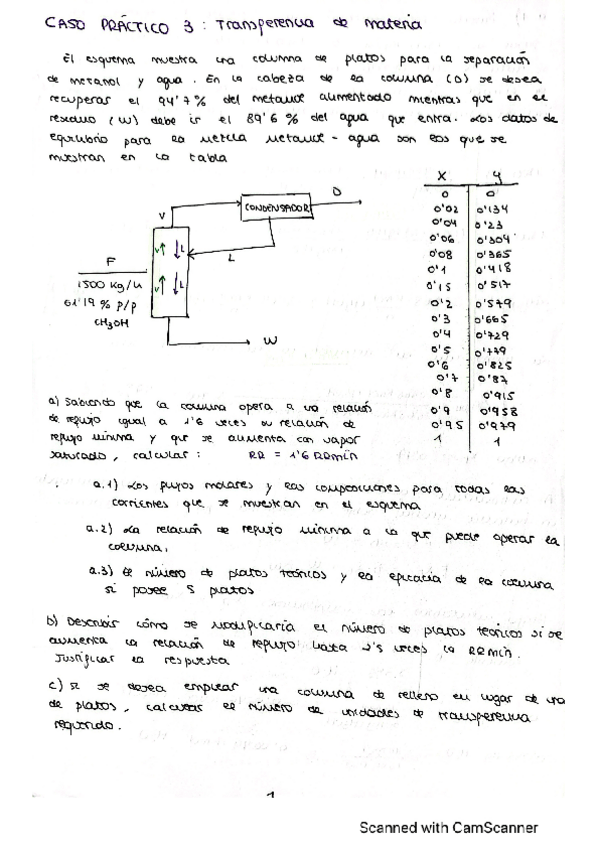 CASO PRÁCTICO 3 : Transferencia de materia
El esquema muestra una columna de platos para la separación
de metanol y agua. En la cabeza de la columna (D) se desea
recuperar el 94'7% del metanol alimentado mientras que en el
residuo (W) debe ir el 89'6% del agua que entra. Los datos de
equilibrio para la mezcla metanol - agua son los que se
muestran en la tabla
x y
0 0
0'02 0'134
0'04 0'23
0'06 0'304
0'08 0'365
0'1 0'418
0'15 0'517
0'2 0'579
0'3 0'665
0'4 0'729
0'5 0'779
0'6 0'825
0'7 0'87
0'8 0'915
0'9 0'958
0'95 0'979
1 1
V
CONDENSADOR
D
L
V L
V L
F
1500 kg/h
61'19 % p/p
CH3OH
W
a) Sabiendo que la columna opera a una relación
de reflujo igual a 1'6 veces su relación de
reflujo mínima y que se alimenta con vapor
saturado, calcular : RR = 1'6 RRmín
a.1) Los flujos molares y las composiciones para todas las
corrientes que se muestran en el esquema
a.2) La relación de reflujo mínima a la que puede operar la
columna.
a.3) El número de platos teóricos y la eficacia de la columna
si posee 5 platos
b) Describir cómo se modificaría el número de platos teóricos si se
aumenta la relación de reflujo hasta 2'5 veces la RRmín.
Justificar la respuesta
c) Si se desea emplear una columna de relleno en lugar de una
de platos, calcular el número de unidades de transferencia
requerido.
1
Scanned with CamScanner